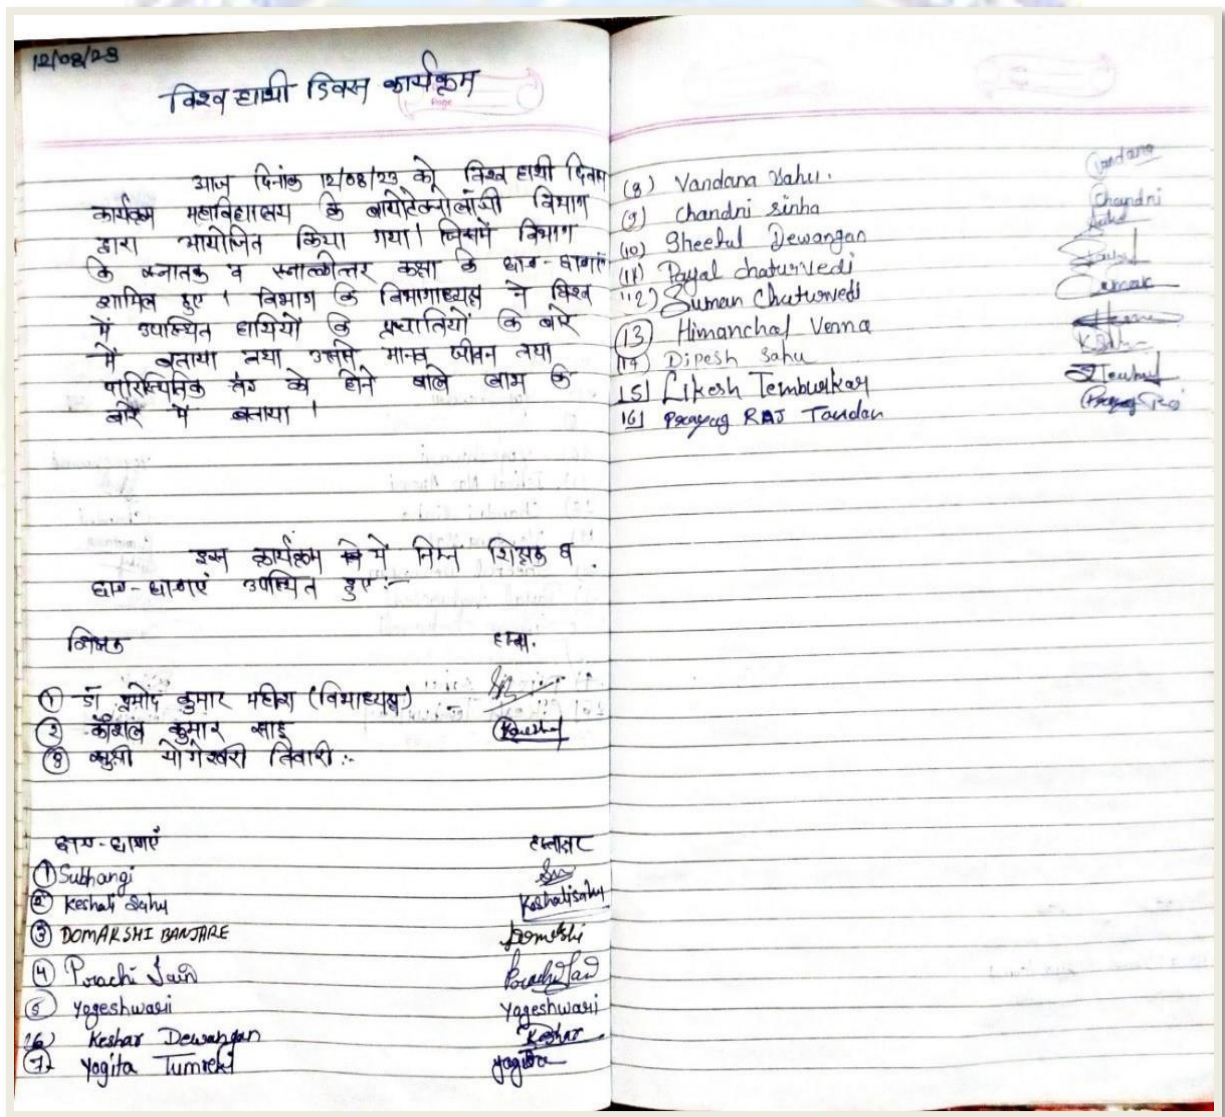 12/08/23
विश्व हाथी दिवस कार्यक्रम
आज दिनांक 12/08/23 को विश्व हाथी दिवस
कार्यक्रम महाविद्यालय के बायोटेक्नोलॉजी विभाग
द्वारा आयोजित किया गया। जिसमें विभाग
के स्नातक व स्नातकोत्तर कक्षा के छात्र-छात्राएं
शामिल हुए। विभाग के विभागाध्यक्ष ने विश्व
में उपस्थित हाथियों कि प्रजातियों के बारे
में बताया तथा उससे मानव जीवन तथा
पारिस्थितिक तंत्र को होने वाले लाभ के
बारे में बताया।
इस कार्यक्रम में निम्न शिक्षक व
छात्र-छात्राएं उपस्थित हुए:-
शिक्षक हस्ता.
① डॉ प्रमोद कुमार महीश (विभाध्यक्ष)
② कौशल कुमार साहू
③ सुश्री योगेश्वरी तिवारी :-
छात्र-छात्राएं हस्ताक्षर
① Subhangi
② Keshali Sahu Keshalisahu
③ DOMAKSHI BANJARE
④ Prachi Jain Prachi Jain
⑤ Yogeshwari Yogeshwari
(6) Keshar Dewangan Keshar
⑦ Yogita Tumreki Yogita
(8) Vandana Sahu. Vandana
(9) Chandni Sinha Chandni
(10) Sheetal Dewangan
(11) Payal Chaturvedi
(12) Suman Chaturvedi
(13) Himanchal Verma
(14) Dipesh Sahu
15) Likesh Temburkar
16) Prayag RAJ Tandan